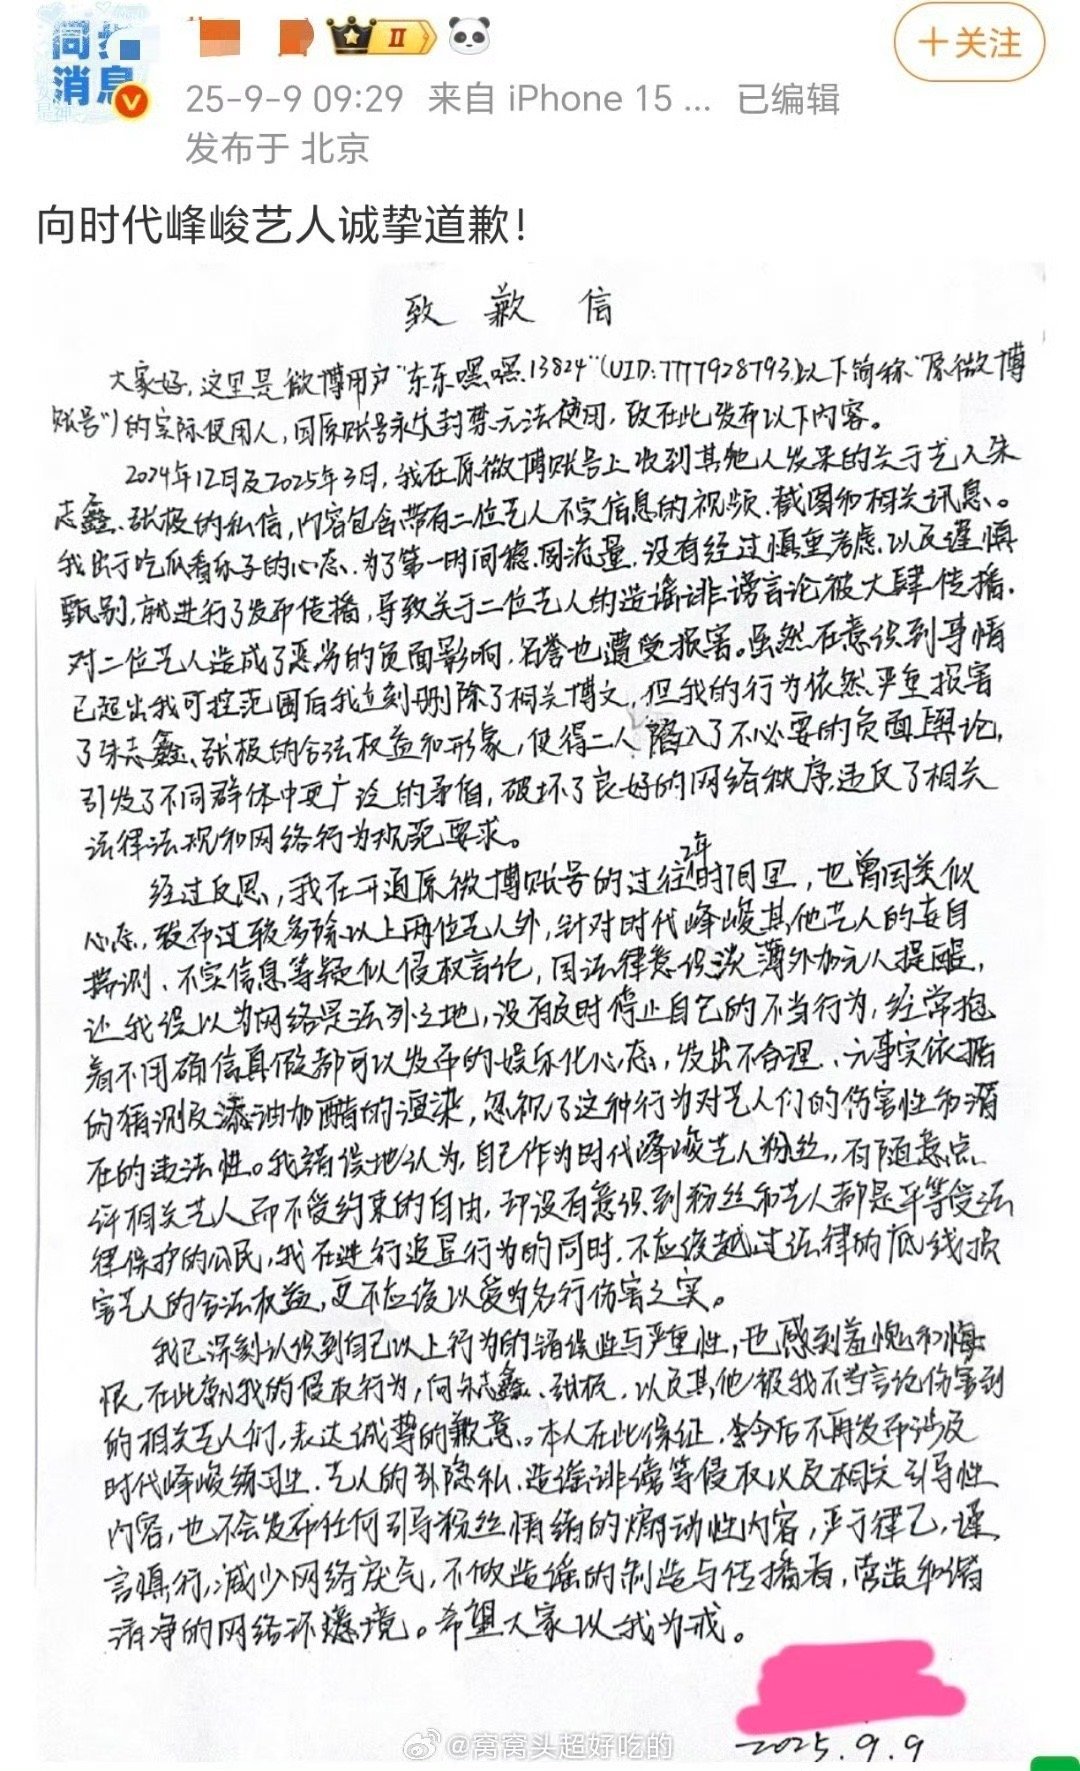 消息
II
+关注
25-9-9 09:29 来自 iPhone 15 ... 已编辑
发布于 北京
向时代峰峻艺人诚挚道歉！
致歉信
大家好，这里是微博用户“东东嘿嘿13824”（UID:7777928793，以下简称“原微博
账号”）的实际使用人，因原账号永久封禁无法使用，故在此发布以下内容。
2024年12月及2025年3月，我在原微博账号上收到其他人发来的关于艺人朱
志鑫、张极的私信，内容包含带有二位艺人不实信息的视频、截图和相关讯息。
我出于吃瓜看乐子的心态、为了第一时间稳固流量，没有经过慎重考虑以及谨慎
甄别，就进行了发布传播，导致关于二位艺人的造谣诽谤言论被大肆传播，
对二位艺人造成了恶劣的负面影响，名誉也遭受损害。虽然在意识到事情
已超出我可控范围后我立刻删除了相关博文，但我的行为依然严重损害
了朱志鑫、张极的合法权益和形象，使得二人陷入了不必要的负面舆论，
引发了不同群体中更广泛的矛盾，破坏了良好的网络秩序，违反了相关
法律法规和网络行为规范要求。
经过反思，我在开通原微博账号的过往2年时间里，也曾因类似
心态，发布过较多除以上两位艺人外，针对时代峰峻其他艺人的妄自
揣测、不实信息等疑似侵权言论，因法律意识淡薄外加无人提醒，
让我误以为网络是法外之地，没有及时停止自己的不当行为，经常抱
着不用确信真假都可以发布的娱乐化心态，发出不合理、无事实依据
的猜测及添油加醋的渲染，忽视了这种行为对艺人们的伤害性和潜
在的违法性。我错误地认为，自己作为时代峰峻艺人粉丝，有随意点
评相关艺人而不受约束的自由，却没有意识到粉丝和艺人都是平等受法
律保护的公民，我在进行追星行为的同时，不应该越过法律的底线损
害艺人的合法权益，更不应该以爱为名行伤害之实。
我已深刻认识到自己以上行为的错误性与严重性，也感到羞愧和悔
恨，在此就我的侵权行为，向朱志鑫、张极，以及其他被我不当言论伤害到
的相关艺人们，表达诚挚的歉意。本人在此保证，至今后不再发布涉及
时代峰峻练习生、艺人的非隐私、造谣诽谤等侵权以及相关引导性
内容，也不会发布任何引导粉丝情绪的煽动性内容，严于律己，谨
言慎行，减少网络戾气，不做造谣的制造与传播者，营造和谐
清净的网络环境。希望大家以我为戒。
2025.9.9
@窝窝头超好吃的